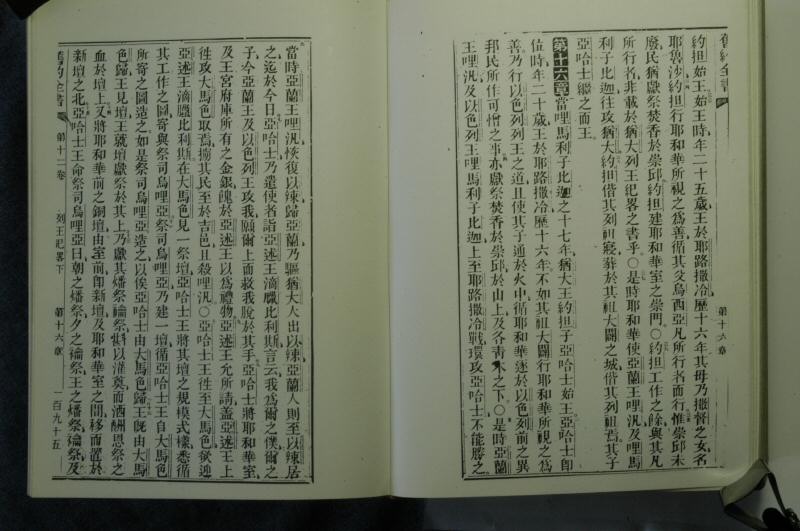 舊約全書
第十六章
約担始王始王時年二十五歲王於耶路撒冷歷十六年其母乃撒督之女名
耶魯沙約担行耶和華所視之為善循其父烏西亞凡所行者而行惟崇邱未
廢民猶獻祭焚香於崇邱約担建耶和華室之崇門○約担工作之餘與其凡
所行者非載於猶大列王紀畧之書乎○是時耶和華使亞蘭王哩汎及哩馬
利子比迦往攻猶大約担偕其列祖寢葬於其祖大闢之城偕其列祖焉其子
亞哈士繼之而王
第十六章當哩馬利子比迦之十七年猶大王約担子亞哈士始王亞哈士卽
位時年二十歲王於耶路撒冷歷十六年不如其祖大闢行耶和華所視之為
善乃行以色列列王之道且使其子通於火中循耶和華逐於以色列前之異
邦民所作可憎之事亦獻祭焚香於崇邱於山上及各靑木之下○是時亞蘭
王哩汎及以色列王哩馬利子比迦上至耶路撒冷戰環攻亞哈士不能勝之
當時亞蘭王哩汎恢復以辣歸亞蘭乃驅猶大人出以辣亞蘭人則至以辣居
之迄於今日亞哈士乃遣使者詣亞述王滴臘比利斯言云我為爾之僕爾之
子今亞蘭王及以色列王攻我願爾上而救我脫於其手亞哈士將耶和華室
及王宮府庫所有之金銀餽於亞述王以為禮物亞述王允所請蓋亞述王上
往攻大馬色取焉擄其民至於吉邑且殺哩汎○亞哈士王往至大馬色欲迎
亞述王滴臘比利斯在大馬色見一祭壇亞哈士王將其壇之規模式樣悉循
其工作之圖寄與祭司烏哩亞祭司烏哩亞乃建一壇循亞哈士王自大馬色
所寄之圖造之如是祭司烏哩亞造之以俟亞哈士由大馬色歸王旣由大馬
色歸王見壇王就壇獻祭於其上乃獻其燔祭禴祭𢍆以灌奠而洒酬恩祭之
血於壇上又將耶和華前之銅壇由室前卽新壇及耶和華室之間移而置於
新壇之北亞哈士王命祭司烏哩亞曰朝之燔祭夕之禴祭王之燔祭禴祭及
舊約全書 第十二卷 列王紀畧下 第十六章 一百九十五